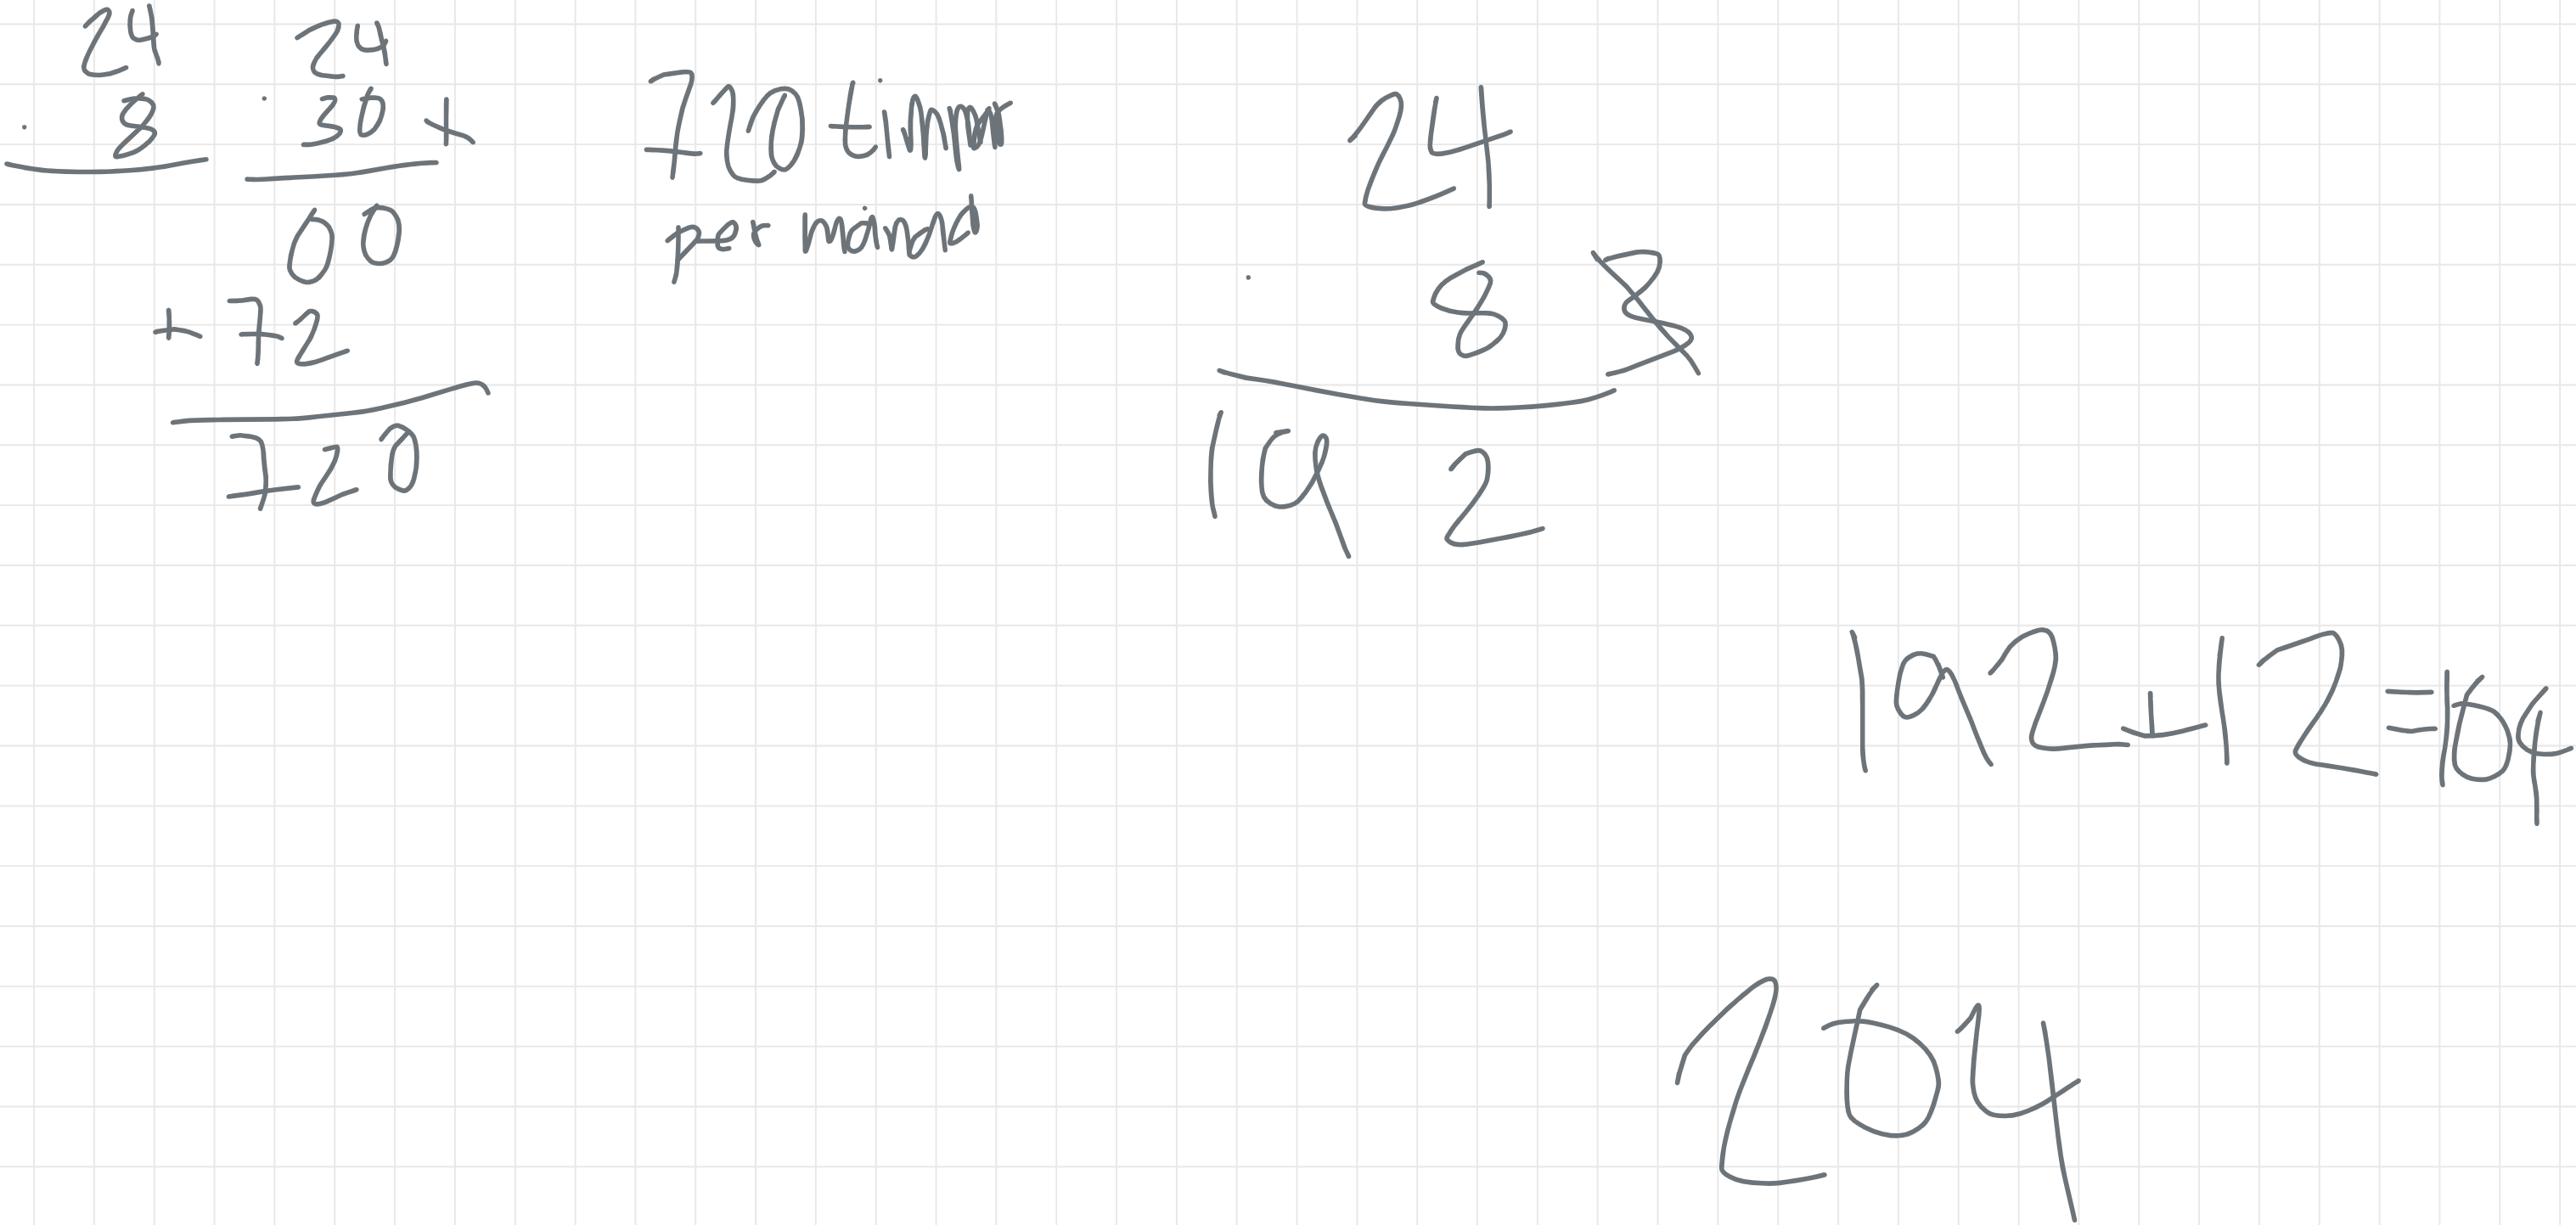 24
· 8
24
· 30 +
00
+ 72
720
720 timmar
per månad
24
· 8
19 2
192+12=164
204